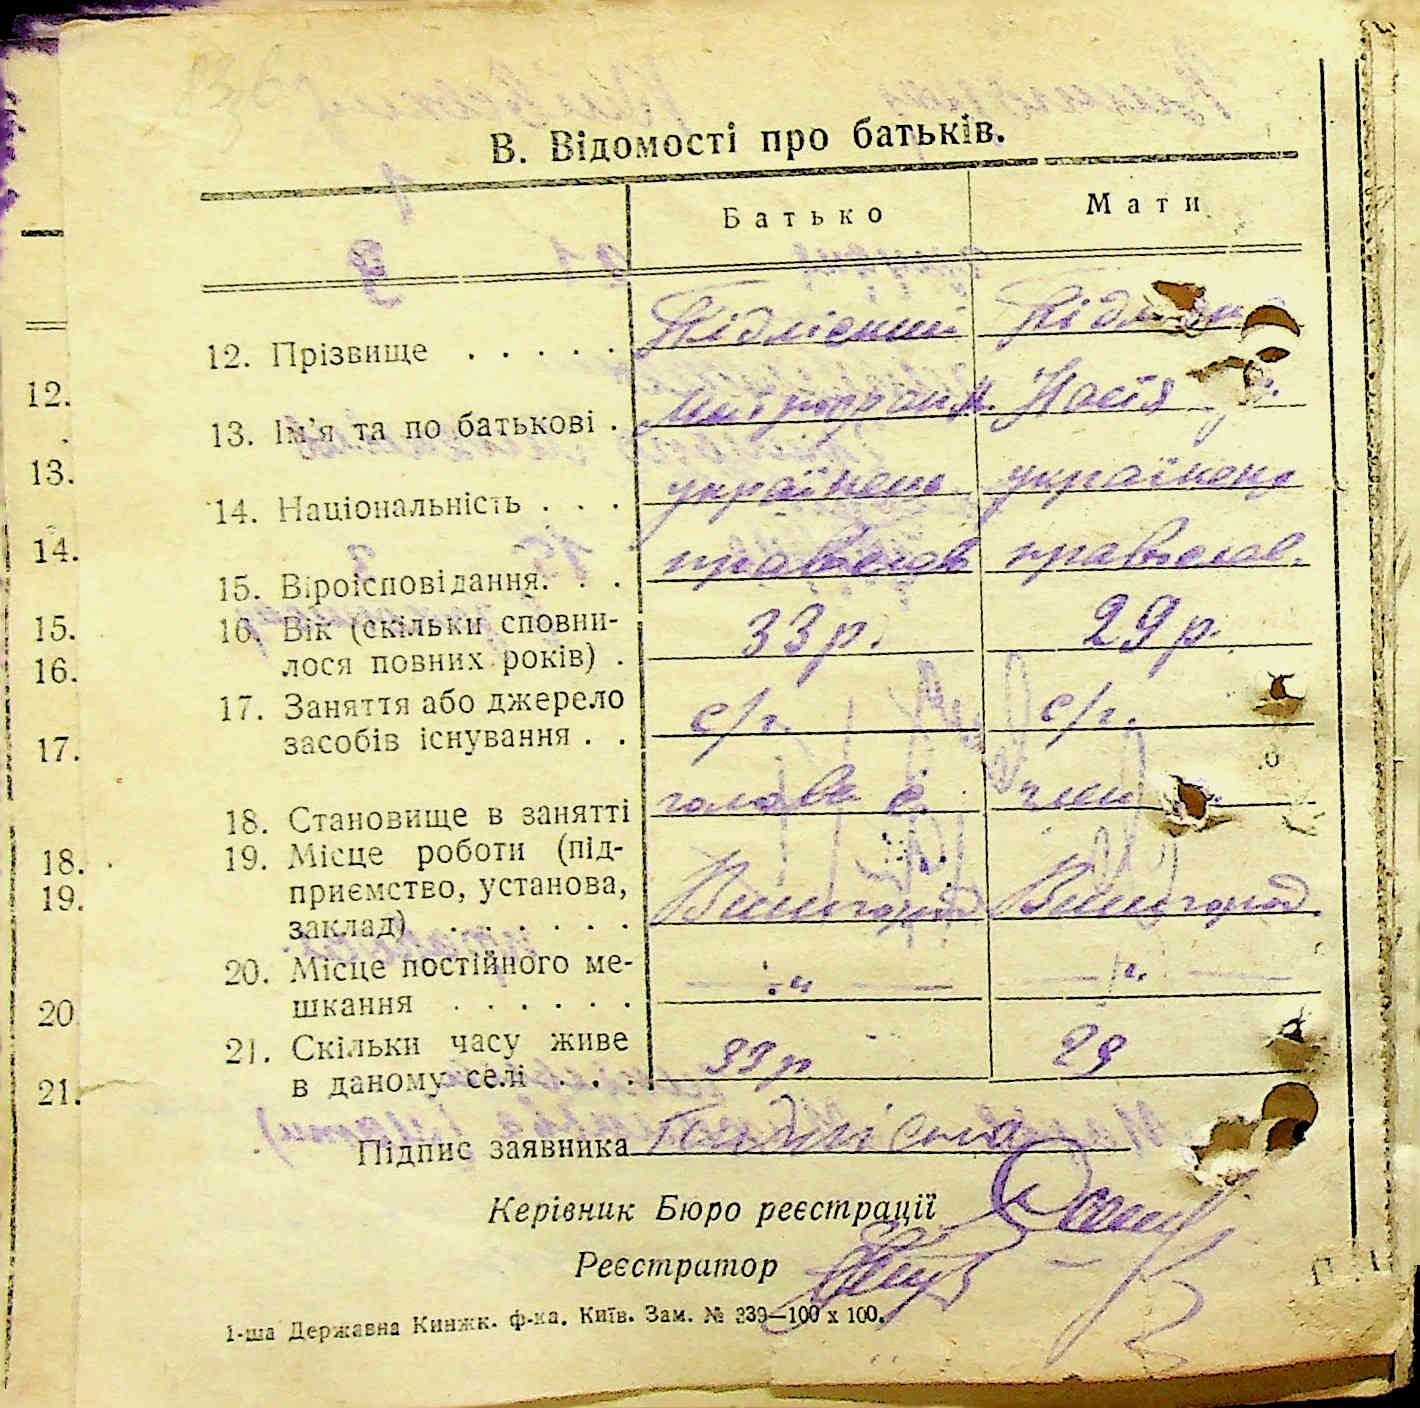 В. Відомості про батьків.
Батько Мати
12. Прізвище . . . . . Підлісний
12.
13. Ім'я та по батькові . Настя
13.
14. Національність . . . українець українка
14.
15. Віроісповідання. . . православ православ.
15.
16. Вік (скільки сповни-
лося повних років) . 33 р. 29 р.
16.
17. Заняття або джерело
засобів існування . . с/г. с/г.
17.
18. Становище в занятті голова с. член
18.
19. Місце роботи (під-
приємство, установа,
заклад) . . . . . . Вишгород Вишгород
19.
20. Місце постійного ме-
шкання . . . . . . — " — — " —
20
21. Скільки часу живе
в даному селі . . . 33 р 29
21.
Підпис заявника Підлісна
Керівник Бюро реєстрації
Реєстратор
1-ша Державна Кинжк. ф-ка. Київ. Зам. № 339—100 х 100.